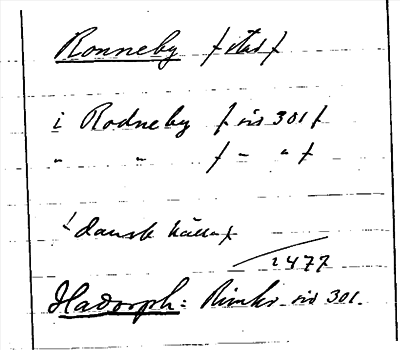 Ronneby / stad /
i Rodneby / sid 301 /
" " / - " /
/ dansk källa /
1477
Hadorph: Rimkr. sid 301.